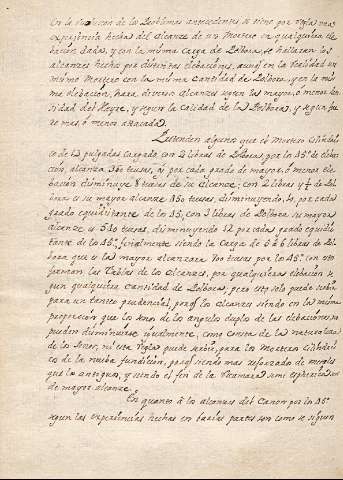 En la solucion de los Problemas antecedentes se tiene por regla una
experiencia hecha del alcance de un Mortero en qualquiera ele-
bacion dada, y con la misma carga de Polbora, se hallaran los
alcances hechos por diferentes elebaciones, aunq̃ en la realidad un
mismo Mortero con la misma Cantidad de Polbora, y en la mis-
ma elebacion, hara diverso alcance segun la mayor, ó menor den-
sidad del Ayre, y segun la calidad de la Polbora, y segun fue-
re mas, ó menos atacada.
Pretenden algunos que el Mortero Cilindri-
co de 12 pulgadas cargado con 2 libras de Polbora, por los 45.º de eleba-
cion, alcanza 360 tuesas, y por cada grado de mayor, ó menor ele-
bacion disminuye 8 tuesas de su alcance; con 2 libras y ½ de Pol-
bora es su mayor alcance 450 tuesas, disminuyendo, por cada
grado equidistante de los 45; con 3 libras de Polbora su mayor
alcance es 540 tuesas, disminuyendo 12 por cada grado equidis-
tante de los 45.º finalmente siendo la Carga de 5 á 6 libras de Pol-
bora que es la mayor alcanzara 700 tuesas por los 45.º con esto
forman las Tablas de los Alcances, por qualquiera elebacion se-
gun qualquiera Cantidad de Polbora, pero esto solo puede servir
para un tanteo prudencial, porq̃ los alcances siendo en la misma
proporcion que los senos de los angulos duplos de las elebaciones, no
pueden disminuirse igualmente, como consta de la naturaleza
de los senos, ni esta Regla puede servir para los Morteros Cilindri-
cos de la nueba fundicion, porq̃ siendo mas reforzados de metales
que los antiguos, y siendo el fin de la Recamara semi espherica son
de mayor alcance.
En quanto á los alcances del Canon por los 45.º
segun las experiencias hechas en barias partes son como se siguen